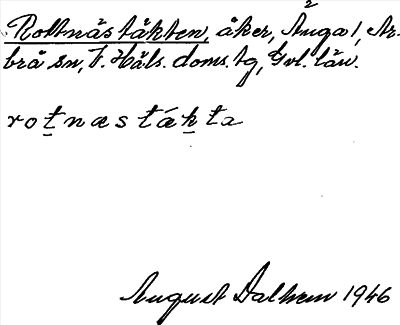 Rottnästäkten, åker, Änga 1, Ar-
brå sn, V. Häls. doms. tg, Gvl. län.
rotnæstǽkta
August Dalhem 1946